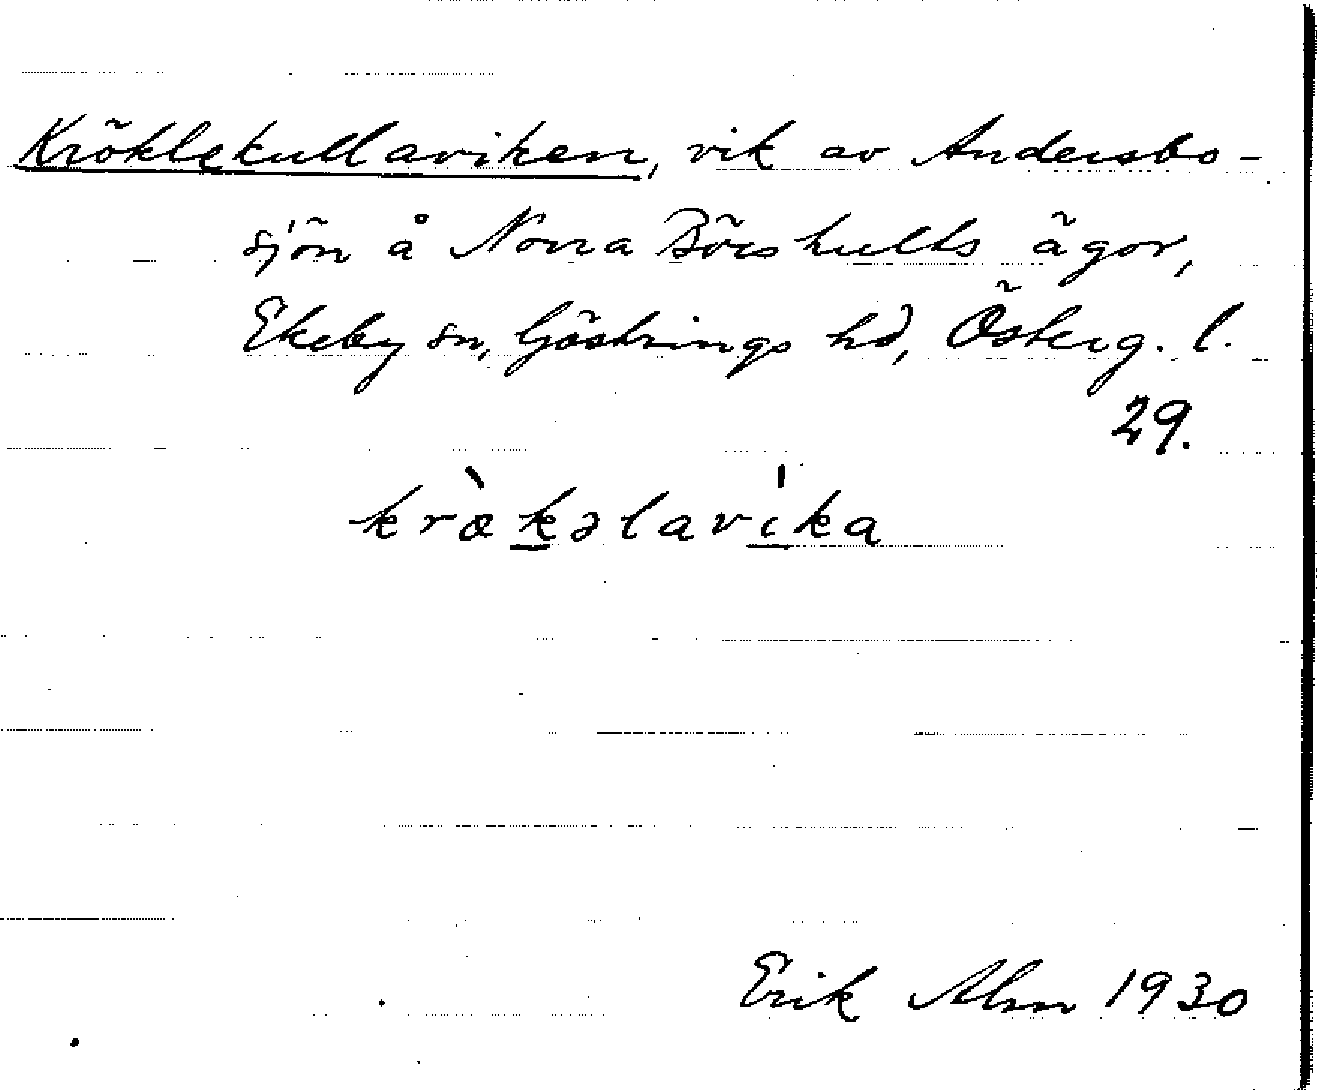 Kröklekullaviken, vik av Andersbo-
sjön å Norra Börshults ägor,
Ekeby sn, Göstrings hd, Österg. l.
29.
kræ̀kəlavíka
Erik Alm 1930